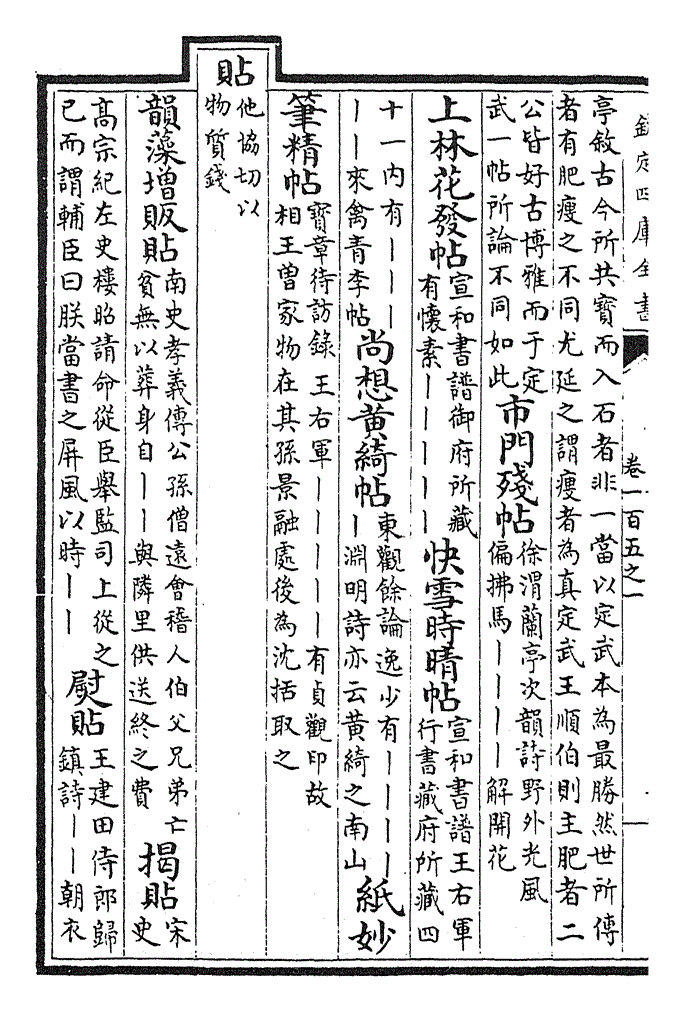 欽定四庫全書
卷一百五之一
亭敘古今所共寶而入石者非一當以定武本為最勝然世所傳
者有肥瘦之不同尤延之謂瘦者為真定武王順伯則主肥者二
公皆好古博雅而于定
武一帖所論不同如此
市門殘帖
徐渭蘭亭次韻詩野外光風
偏拂馬丨丨丨丨解開花
上林花發帖
宣和書譜御府所藏
有懷素丨丨丨丨丨
快雪時晴帖
宣和書譜王右軍
行書藏府所藏四
十一内有丨丨丨
丨丨來禽青李帖
尚想黃綺帖
東觀餘論逸少有丨丨丨丨
丨淵明詩亦云黃綺之南山
紙妙
筆精帖
寶章待訪錄王右軍丨丨丨丨丨有貞觀印故
相王曾家物在其孫景融處後為沈括取之
貼
他協切以
物質錢
韻藻增販貼
南史孝義傳公孫僧遠會稽人伯父兄弟亡
貧無以葬身自丨丨與隣里供送終之費
揭貼
宋
史
髙宗紀左史樓昭請命從臣舉監司上從之
已而謂輔臣曰朕當書之屏風以時丨丨
熨貼
王建田侍郎歸
鎮詩丨丨朝衣